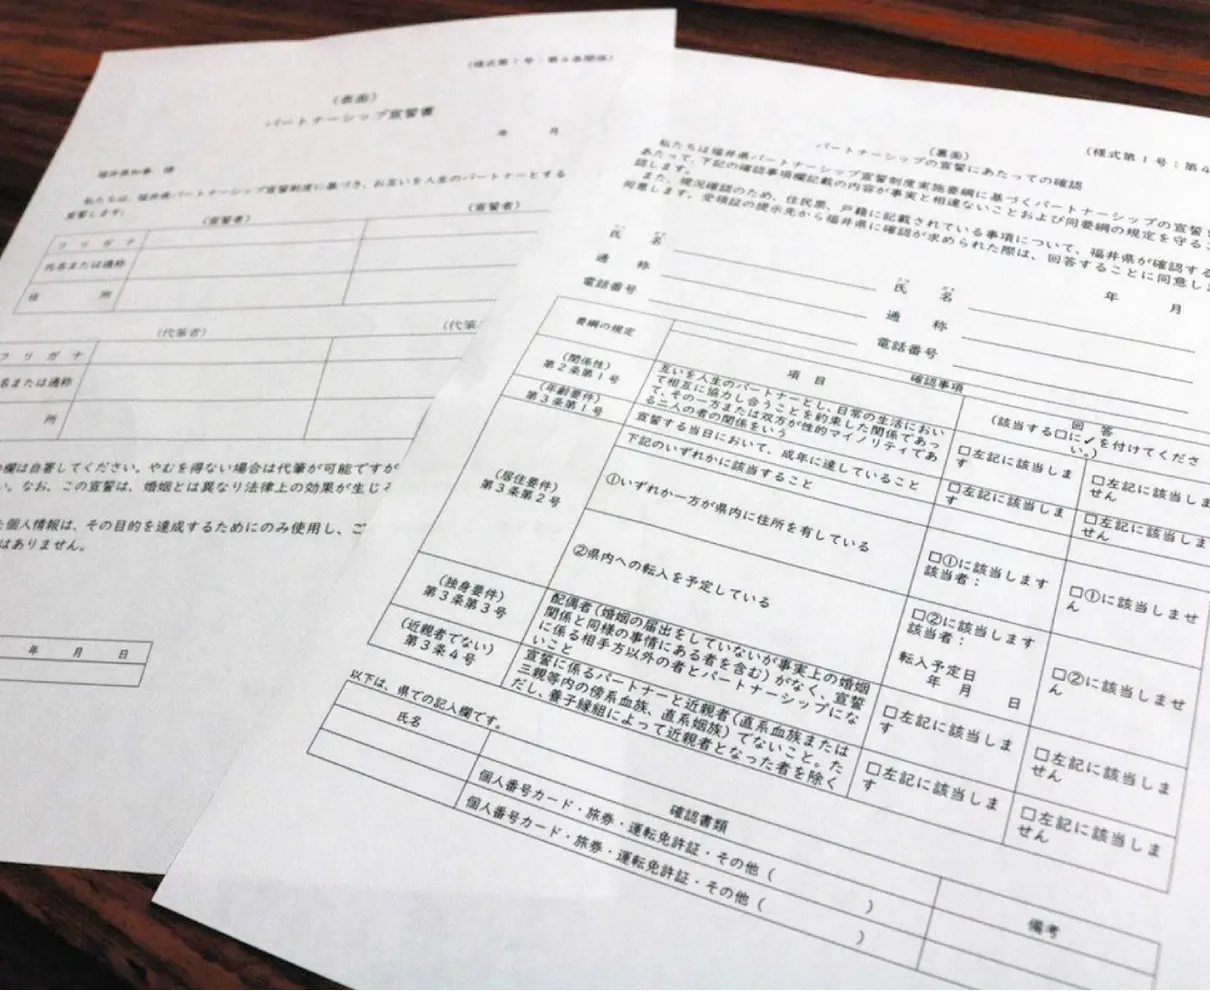 (様式第1号:第4条関係)
(表面)
パートナーシップ宣誓書
年 月
福井県知事 様
私たちは、福井県パートナーシップ宣誓制度に基づき、お互いを人生のパートナーとする
宣誓します。
(宣誓者)
(宣誓者)
フリガナ
氏名または通称
住 所
(代筆者)
(代筆
フリガナ
名または通称
所
欄は自署してください。やむを得ない場合は代筆が可能ですが
い。なお、この宣誓は、婚姻とは異なり法律上の効果が生じ
た個人情報は、その目的を達成するためにのみ使用し、ご
はありません。
年 月 日
(様式第1号:第4
(裏面)
パートナーシップの宣誓にあたっての確認
私たちは福井県パートナーシップ宣誓制度実施要綱に基づくパートナーシップの宣誓
あたって、下記の確認事項欄記載の内容が事実と相違ないことおよび同要綱の規定を守るこ
認します。
また、現況確認のため、住民票、戸籍に記載されている事項について、福井県が確認する
同意します。受領証の提示先から福井県に確認が求められた際は、回答することに同意し
年 月
氏 名
通 称
電話番号
氏 名
通 称
電話番号
要綱の規定
確認事項
項 目
回 答
(該当する□に✓を付けてくださ
い。)
(関係性)
第2条第1号
互いを人生のパートナーとし、日常の生活におい
て相互に協力し合うことを約束した関係であっ
て、その一方または双方が性的マイノリティであ
る二人の者の関係をいう
□左記に該当しま
す
□左記に該当しま
せん
(年齢要件)
第3条第1号
宣誓する当日において、成年に達していること
□左記に該当しま
す
□左記に該当しま
せん
(居住要件)
第3条第2号
下記のいずれかに該当すること
①いずれか一方が県内に住所を有している
□①に該当します
該当者:
□①に該当しませ
ん
②県内への転入を予定している
□②に該当します
該当者:
転入予定日
年 月 日
□②に該当しませ
ん
(独身要件)
第3条第3号
配偶者(婚姻の届出をしていないが事実上の婚姻
関係と同様の事情にある者を含む)がなく、宣誓
に係る相手方以外の者とパートナーシップにな
いこと
□左記に該当しま
す
□左記に該当しま
せん
(近親者でない)
第3条4号
宣誓に係るパートナーと近親者(直系血族または
三親等内の傍系血族、直系姻族)でないこと。た
だし、養子縁組によって近親者となった者を除く
□左記に該当しま
す
□左記に該当しま
せん
以下は、県での記入欄です。
氏名
確認書類
備考
個人番号カード・旅券・運転免許証・その他( )
個人番号カード・旅券・運転免許証・その他( )